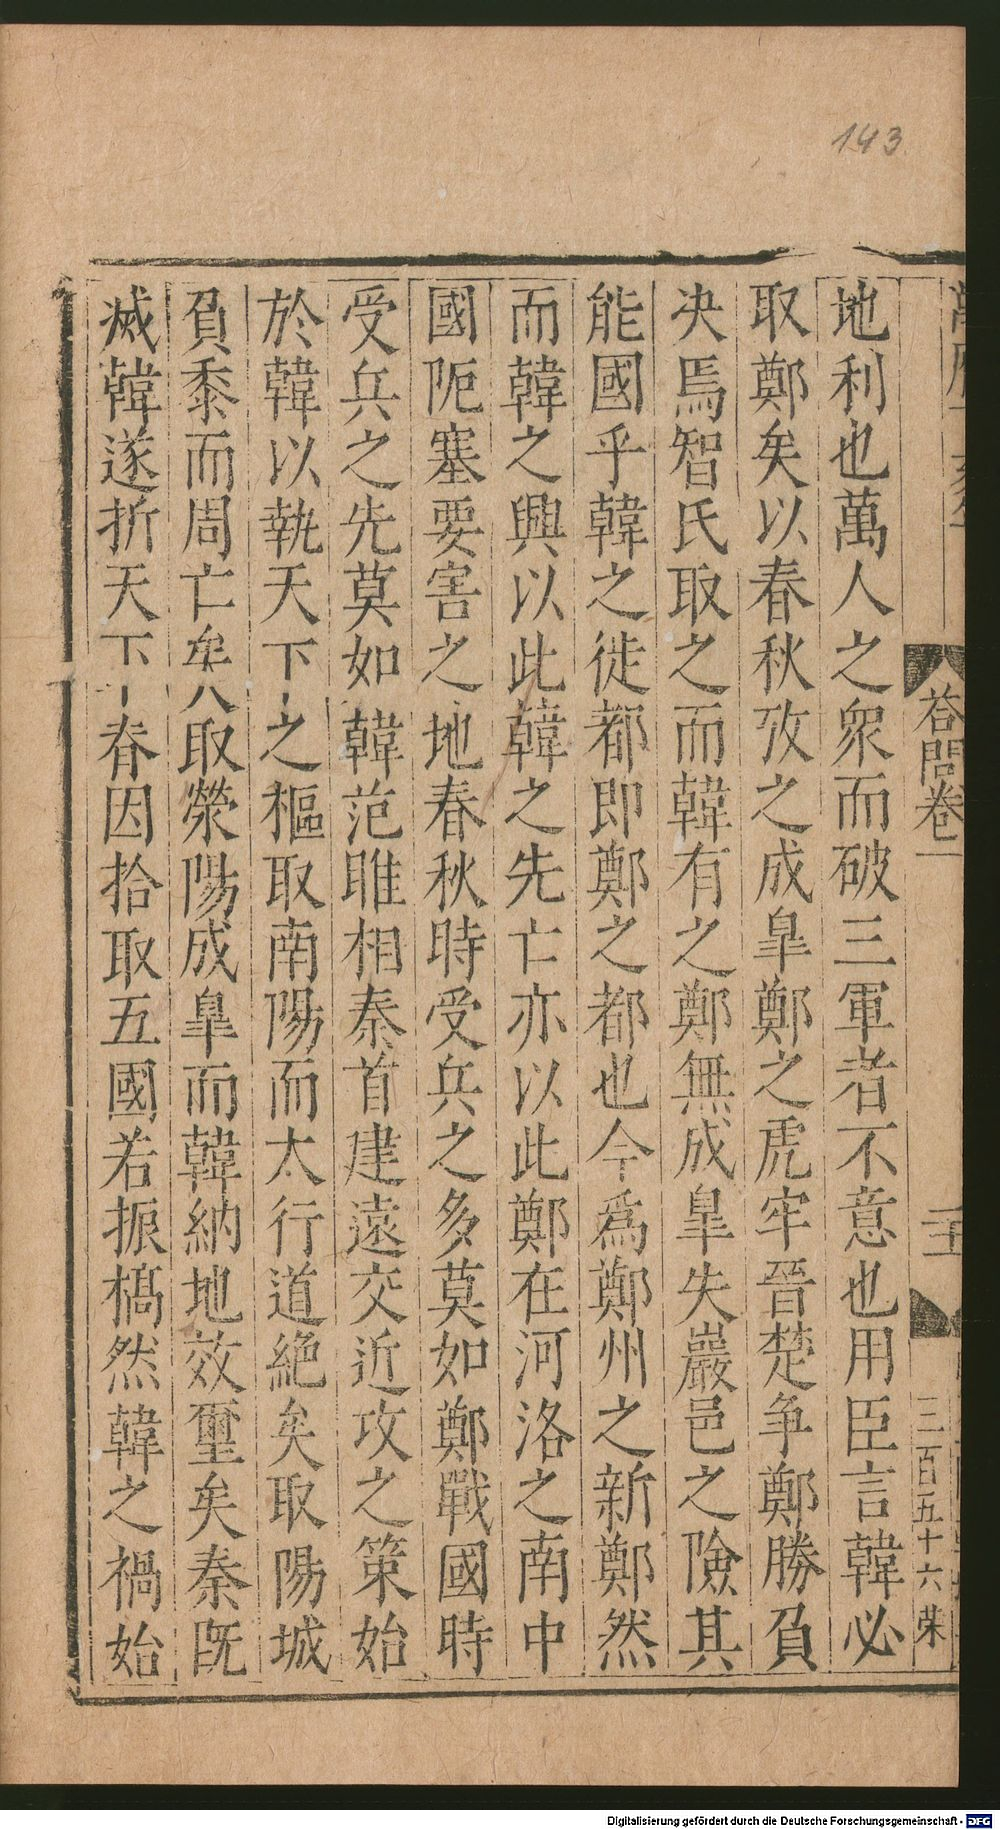 143
答問卷一
二十一
三百五十六 朱
地利也萬人之眾而破三軍者不意也用臣言韓必
取鄭矣以春秋攷之成臯鄭之虎牢晉楚爭鄭勝負
决焉智氏取之而韓有之鄭無成臯失巖邑之險其
能國乎韓之徙都即鄭之都也今為鄭州之新鄭然
而韓之興以此韓之先亡亦以此鄭在河洛之南中
國阨塞要害之地春秋時受兵之多莫如鄭戰國時
受兵之先莫如韓范雎相秦首建遠交近攻之策始
於韓以執天下之樞取南陽而太行道絕矣取陽城
負黍而周亡矣取滎陽成臯而韓納地效璽矣秦既
滅韓遂折天下脊因拾取五國若振槁然韓之禍始
Digitalisierung gefördert durch die Deutsche Forschungsgemeinschaft - DFG